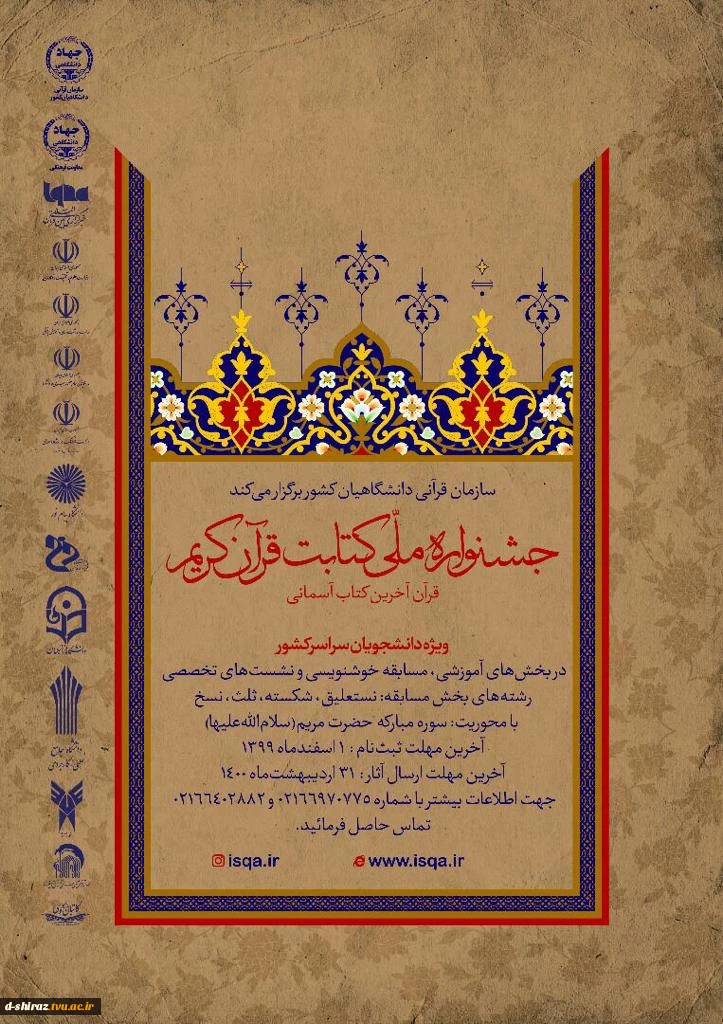 سازمان قرآنی دانشگاهیان کشور برگزار می‌کند
جشنواره ملّی کتابت قرآن کریم
قرآن آخرین کتاب آسمانی
ویژه دانشجویان سراسر کشور
در بخش‌های آموزشی، مسابقه خوشنویسی و نشست‌های تخصصی
رشته‌های بخش مسابقه: نستعلیق، شکسته، ثلث، نسخ
با محوریت: سوره مبارکه حضرت مریم (سلام‌الله‌علیها)
آخرین مهلت ثبت‌نام: ۱ اسفندماه ۱۳۹۹
آخرین مهلت ارسال آثار: ۳۱ اردیبهشت‌ماه ۱۴۰۰
جهت اطلاعات بیشتر با شماره ۰۲۱۶۶۹۷۰۷۷۵ و ۰۲۱۶۶۴۰۲۸۸۲
تماس حاصل فرمائید.
isqa.ir www.isqa.ir
جهاد
دانشگاهی
سازمان قرآنی
دانشگاهیان کشور
جهاد
دانشگاهی
معاونت فرهنگی
iqna
دانشگاه پیام نور
دانشگاه جامع
علمی کاربردی
d-shiraz.tvu.ac.ir